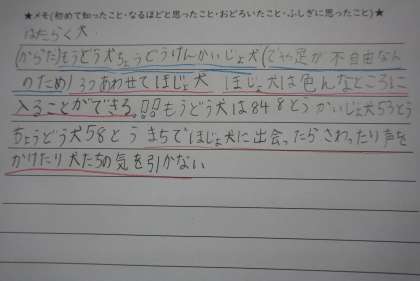 ★メモ(初めて知ったこと・なるほどと思ったこと・おどろいたこと・ふしぎに思ったこと)★
はたらく犬
(からだ)もうどう犬ちょうどうけんかいじょ犬(てや足が不自由なん
のため)3つあわせてほじょ犬 ほじょ犬は色んなところに
入ることができる。!!もうどう犬は848とうかいじょ犬53とう
ちょうどう犬58とう まちでほじょ犬に出会ったらさわったり声を
かけたり犬たちの気を引かない